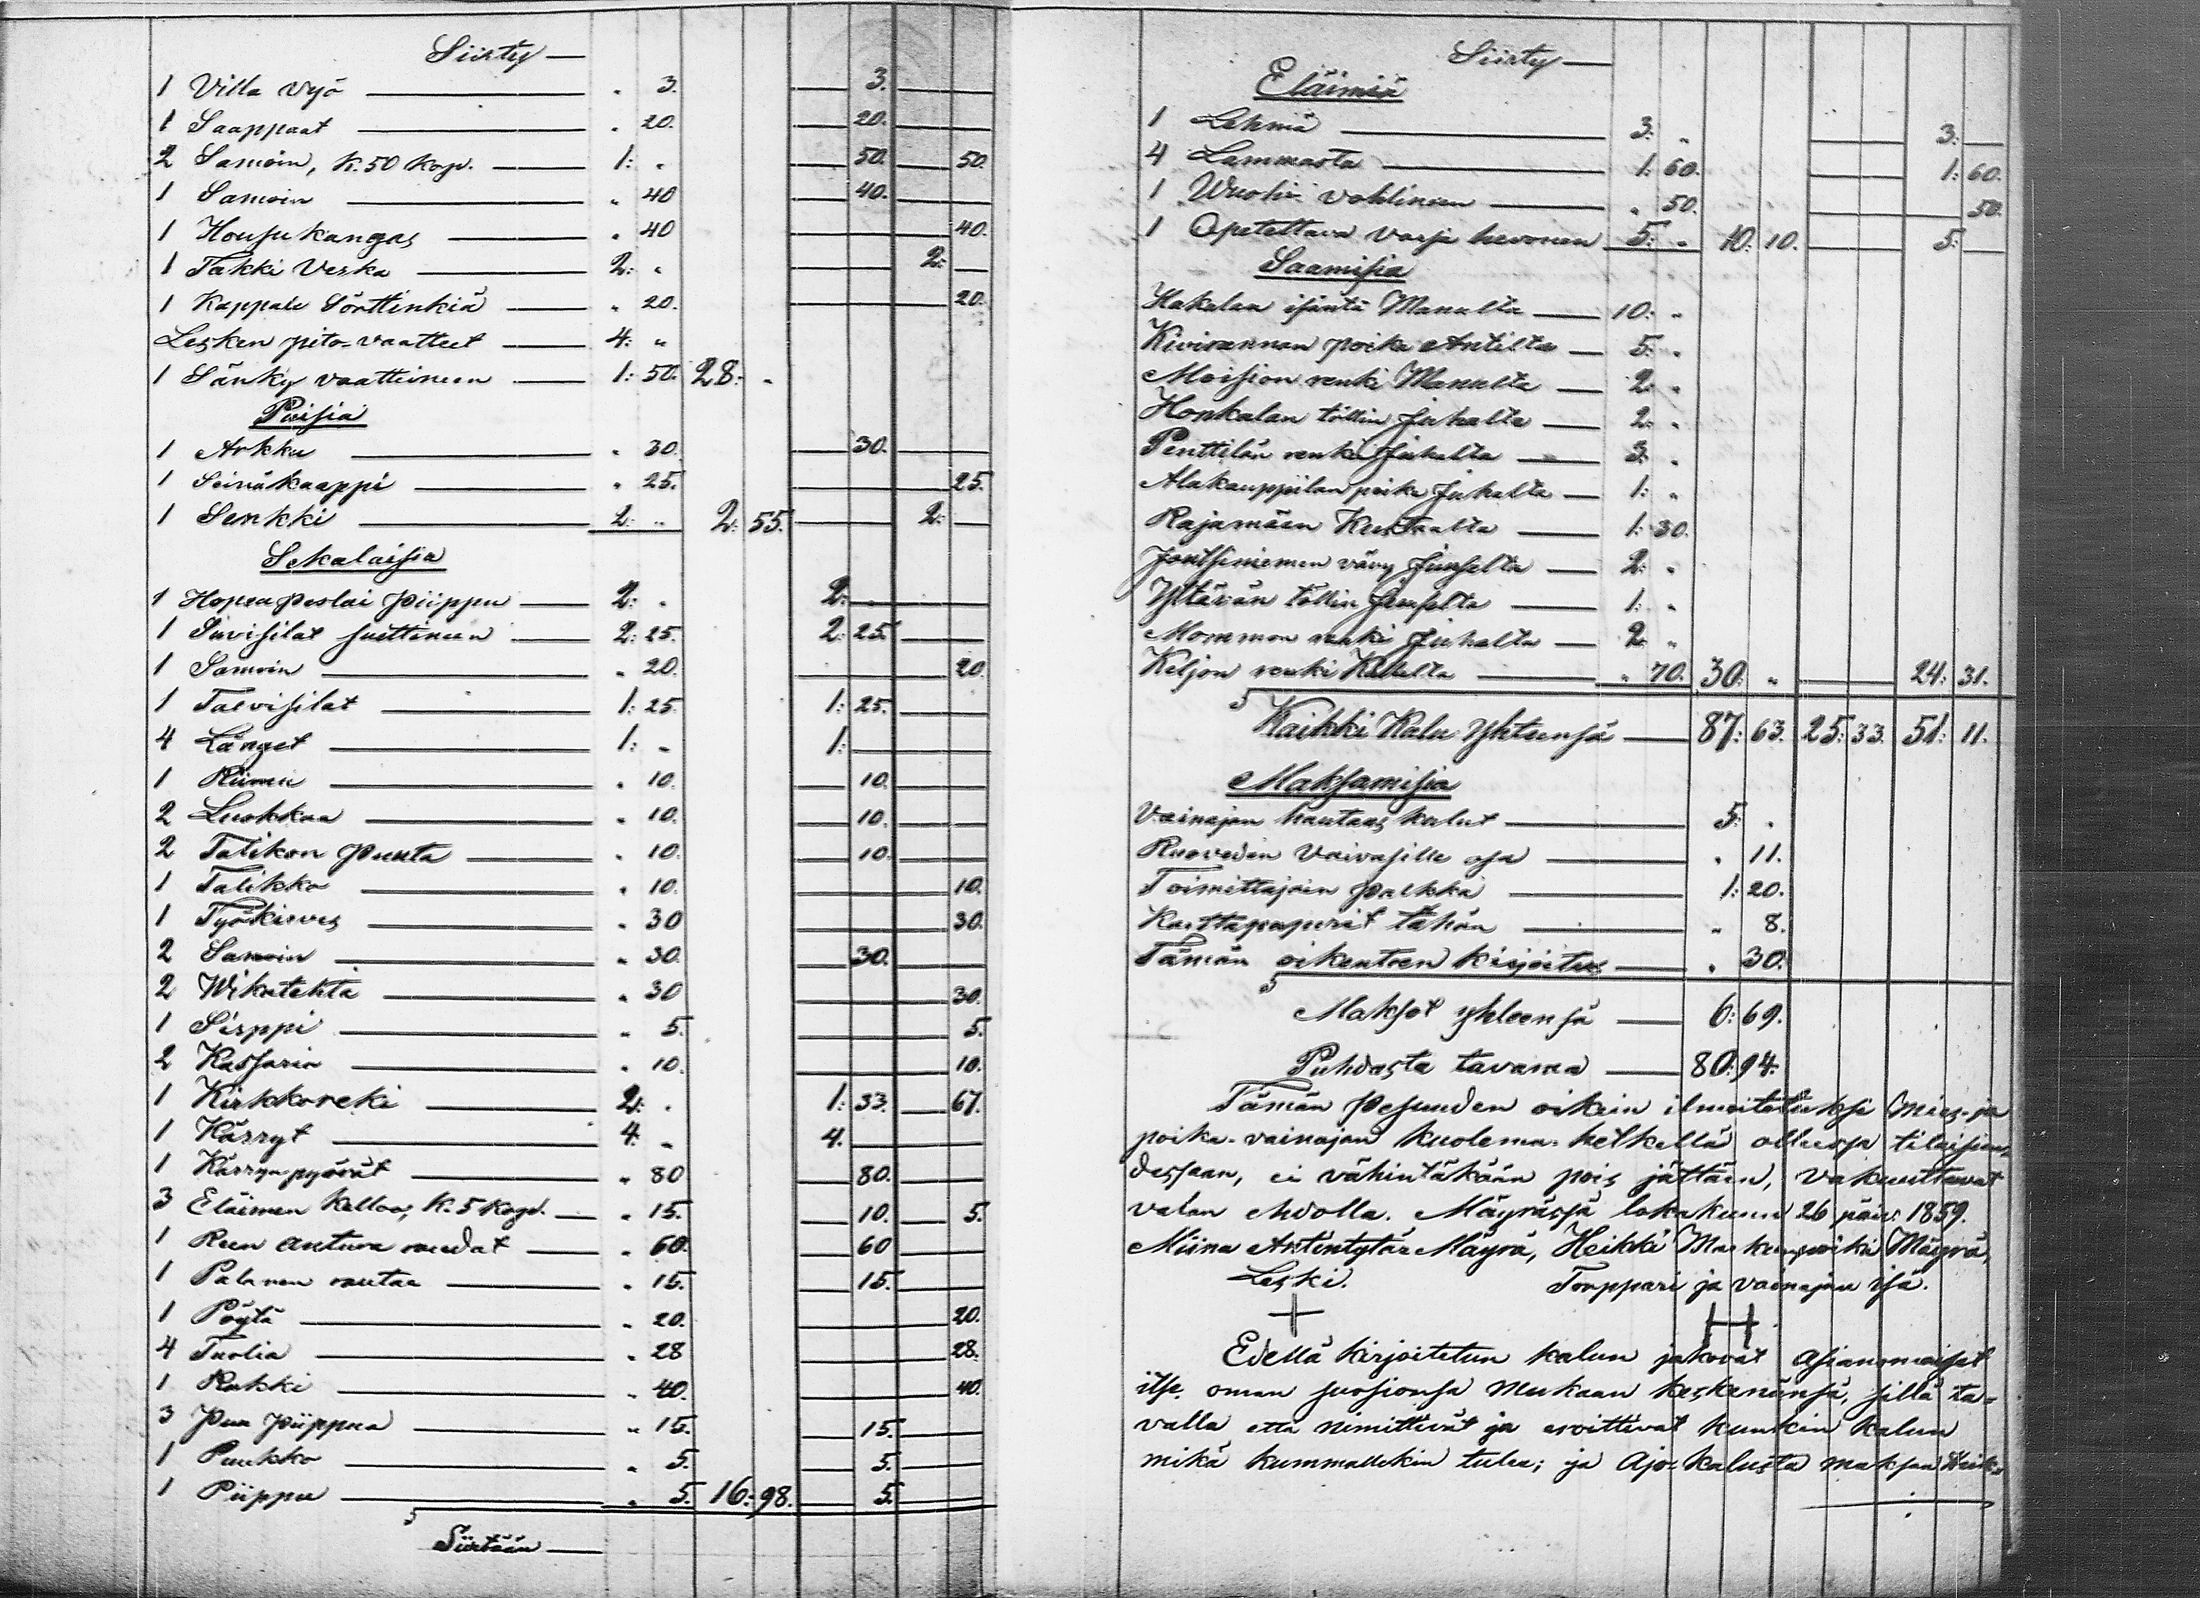 Siirty —
1 Villa vyö — „ 3. — 3. —
1 Saappaat — „ 20. — 20. —
2 Samoin, k. 50 kop. — 1: „ — 50. — 50.
1 Samoin — „ 40 — 40. —
1 Housu kangas — „ 40 — 40.
1 Takki Verka — 2: „ — 2: —
1 Kappale Sörttinkiä — „ 20. — 20.
Lesken pito-vaatteet — 4: „
1 Sänky vaatteineen — 1: 50. 28: „
Puisia
1 Arkku — „ 30. — 30. —
1 Seinäkaappi — „ 25. — 25.
1 Senkki — 2: „ 2: 55. — 2: —
Sekalaisia
1 Hopea peslai piippu — 2: „ 2: —
1 Suvisilat suittineen — 2: 25. 2: 25. —
1 Samoin — „ 20. — 20.
1 Talvisilat — 1: 25. 1: 25. —
4 Länget — 1: „ 1: —
1 Riimu — „ 10. — 10. —
2 Luokkaa — „ 10. — 10. —
2 Talikon puuta — „ 10. — 10. —
1 Talikko — „ 10. — 10.
1 Työkirves — „ 30 — 30.
2 Samoin — „ 30. — 30. —
2 Wikatehtä — „ 30 — 30.
1 Sirppi — „ 5. — 5.
2 Kassaria — „ 10. — 10.
1 Kirkkoreki — 2: „ 1: 33. — 67.
1 Kärryt — 4: „ 4. —
1 Kärryn pyörät — „ 80 — 80. —
3 Eläimen kelloa, k. 5 kop. — „ 15. — 10. — 5.
1 Reen antura raudat — „ 60. — 60 —
1 Palanen rautaa — „ 15. — 15. —
1 Pöytä — „ 20. — 20.
4 Tuolia — „ 28 — 28.
1 Rukki — „ 40. — 40.
3 Puu piippua — „ 15. — 15. —
1 Puukko — „ 5. — 5. —
1 Piippu — „ 5. 16: 98. — 5. —
Siirtään —
Siirty —
Eläimiä
1 Lehmä — 3: „ — 3: —
4 Lammasta — 1: 60. — 1: 60.
1 Wuohi vohlineen — „ 50. — 50.
1 Opetettava varsa hevonen — 5: „ 10: 10. — 5: —
Saamisia
Hakalan isäntä Manulta — 10: „
Kivirannan poika Antilta — 5: „
Moision renki Manulta — 2: „
Honkalan töllin Juhalta — 2: „
Penttilän renki Juhalta — 3: „
Alakauppilan poika Juhalta — 1: „
Rajamäen Kustaalta — 1: 30.
Jouttiniemen vävy Juuselta — 2: „
Yltävän töllin Juuselta — 1: „
Mommon renki Juhalta — 2: „
Keljon renki Kallelta — „ 70. 30: „ — 24: 31.
Kaikki Kalu Yhteensä — 87: 63. 25: 33. 51: 11.
Maksamisia
Vainajan hautaus kulut — 5: „
Ruoveden Vaivasille osa — „ 11.
Toimittajain palkka — 1: 20.
Karttapaperit tähän — „ 8.
Tämän oikeutoen kirjoitus — „ 30.
Maksot yhteensä — 6: 69.
Puhdasta tavaraa — 80: 94.
Tämän pesuuden oikein ilmoitetuksi mies- ja
poika-vainajan kuolema-hetkellä ollessa tilaisuu-
dessaan, ei vähintäkään pois jättäin, vakuuttavat
valan ehdolla. Mäyrässä lokakuun 26 päiv. 1859.
Miina Antintytär Mäyrä, Heikki Markunpoika Mäyrä,
Leski. Torppari ja vainajan isä.
+ H
Edellä kirjoitetun kalun jakovat Asianomaiset
itse oman suosionsa mukaan keskenänsä, sillä ta-
valla että nimittivät ja eroittivat kunkin kalun
mikä kummallekin tulee; ja Ajo-kalusta maksaa Heik-